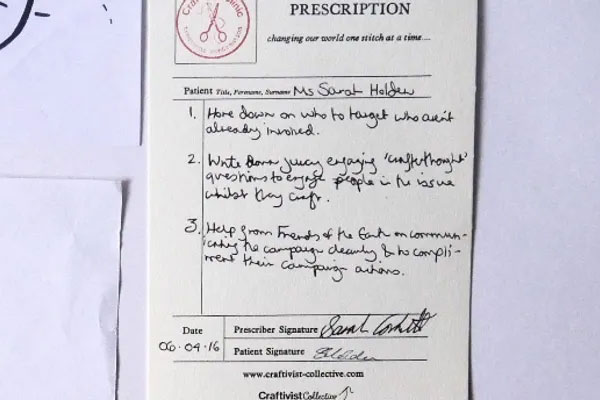 PRESCRIPTION
changing our world one stitch at a time....
Patient Title, Forename, Surname Ms Sarah Holden
1. Hone down on who to target who aren't
already involved.
2. Write down juicy engaging 'crafterthought'
questions to engage people in the issue
whilst they craft.
3. Help from Friends of the Earth on commun-
icating the campaign clearly & to compli-
ment their campaign actions.
Date 06.04.16
Prescriber Signature Sarah Corbett
Patient Signature SHolden
www.craftivist-collective.com
Craftivist Collective